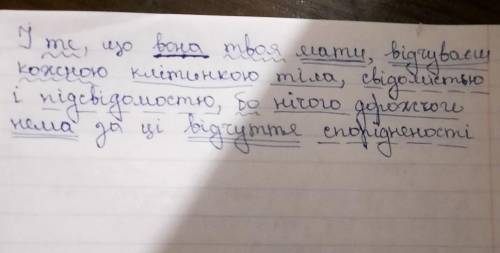 І те, що вона твоя мати, відчуваєш
кожною клітинкою тіла, свідомістю
і підсвідомостю, бо нічого дорожчого
нема за ці відчуття спорідненості